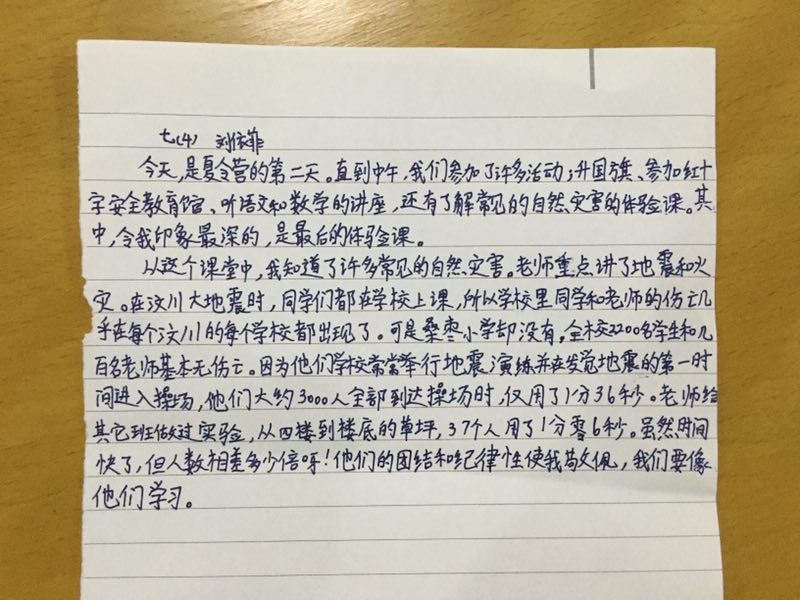 七(4) 刘依菲
今天,是夏令营的第二天。直到中午,我们参加了许多活动:升国旗、参加红十
字安全教育馆、听语文和数学的讲座,还有了解常见的自然灾害的体验课。其
中,令我印象最深的,是最后的体验课。
从这个课堂中,我知道了许多常见的自然灾害。老师重点讲了地震和火
灾。在汶川大地震时,同学们都在学校上课,所以学校里同学和老师的伤亡几
乎在每个汶川的每个学校都出现了。可是桑枣小学却没有。全校2200名学生和几
百名老师基本无伤亡。因为他们学校常常举行地震演练并在发觉地震的第一时
间进入操场,他们大约3000人全部到达操场时,仅用了1分36秒。老师给
其它班做过实验,从四楼到楼底的草坪,37个人用了1分零6秒。虽然时间
快了,但人数相差多少倍呀!他们的团结和纪律性使我敬佩,我们要像
他们学习。